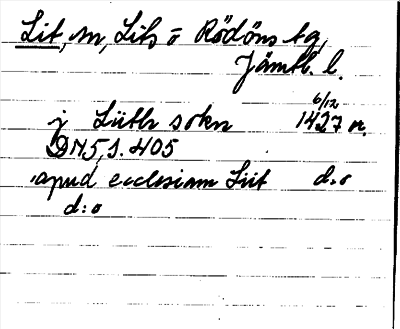 Lit, sn, Lits o Rödöns tg,
Jämtl. l.
j Liitz sokn 6/12 1427 n.
DN5, s. 405
apud ecclesiam Liit d:o
d:o